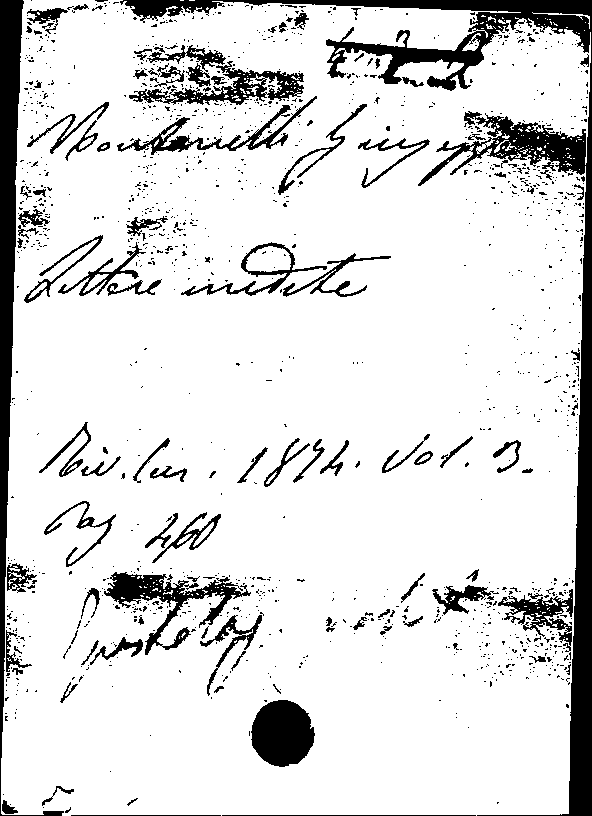 Montanelli Giuseppe
Lettere inedite
Riv. Eur. 1874. Vol. 3.
Pag 460
Epistolog.